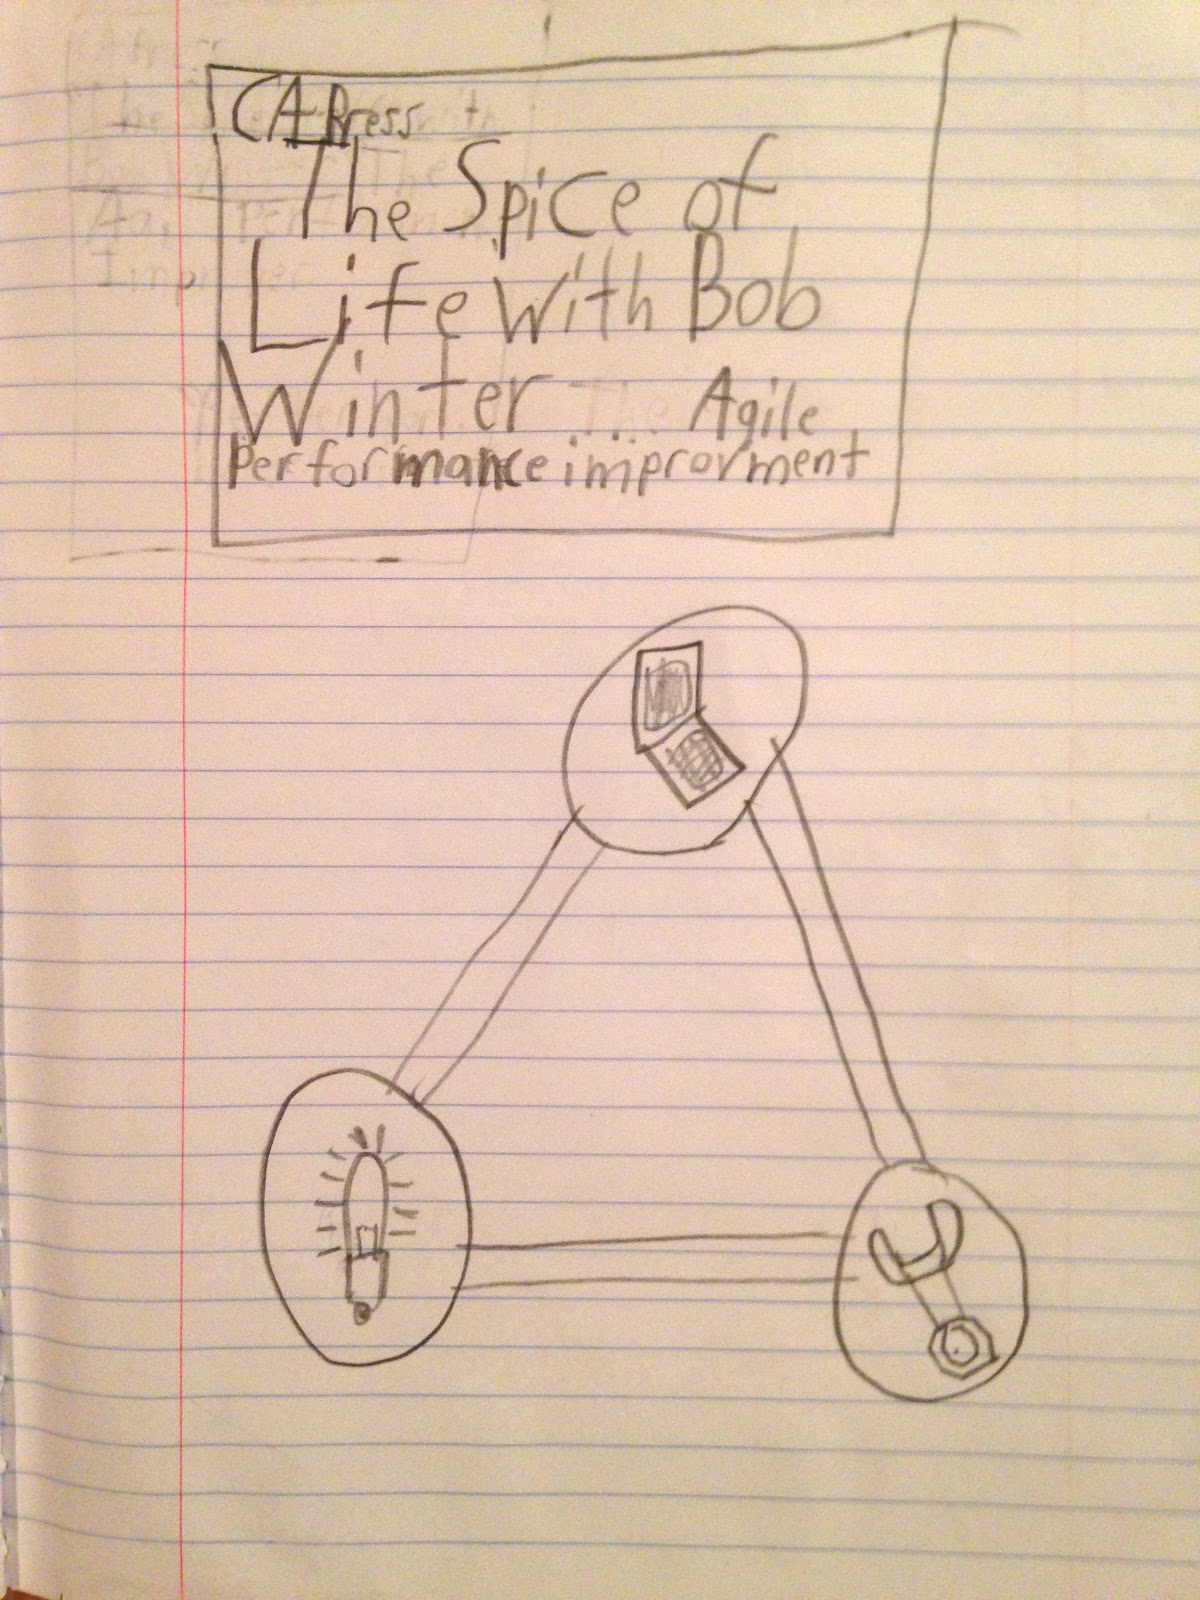 CA Press
The Spice of
Life With Bob
Winter The Agile
Performance improvment